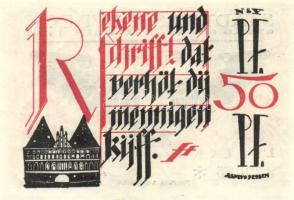 Rekene und
schrifft! dat
verhöt dij
mennigen
kiff.
Pf.
50
Pf.